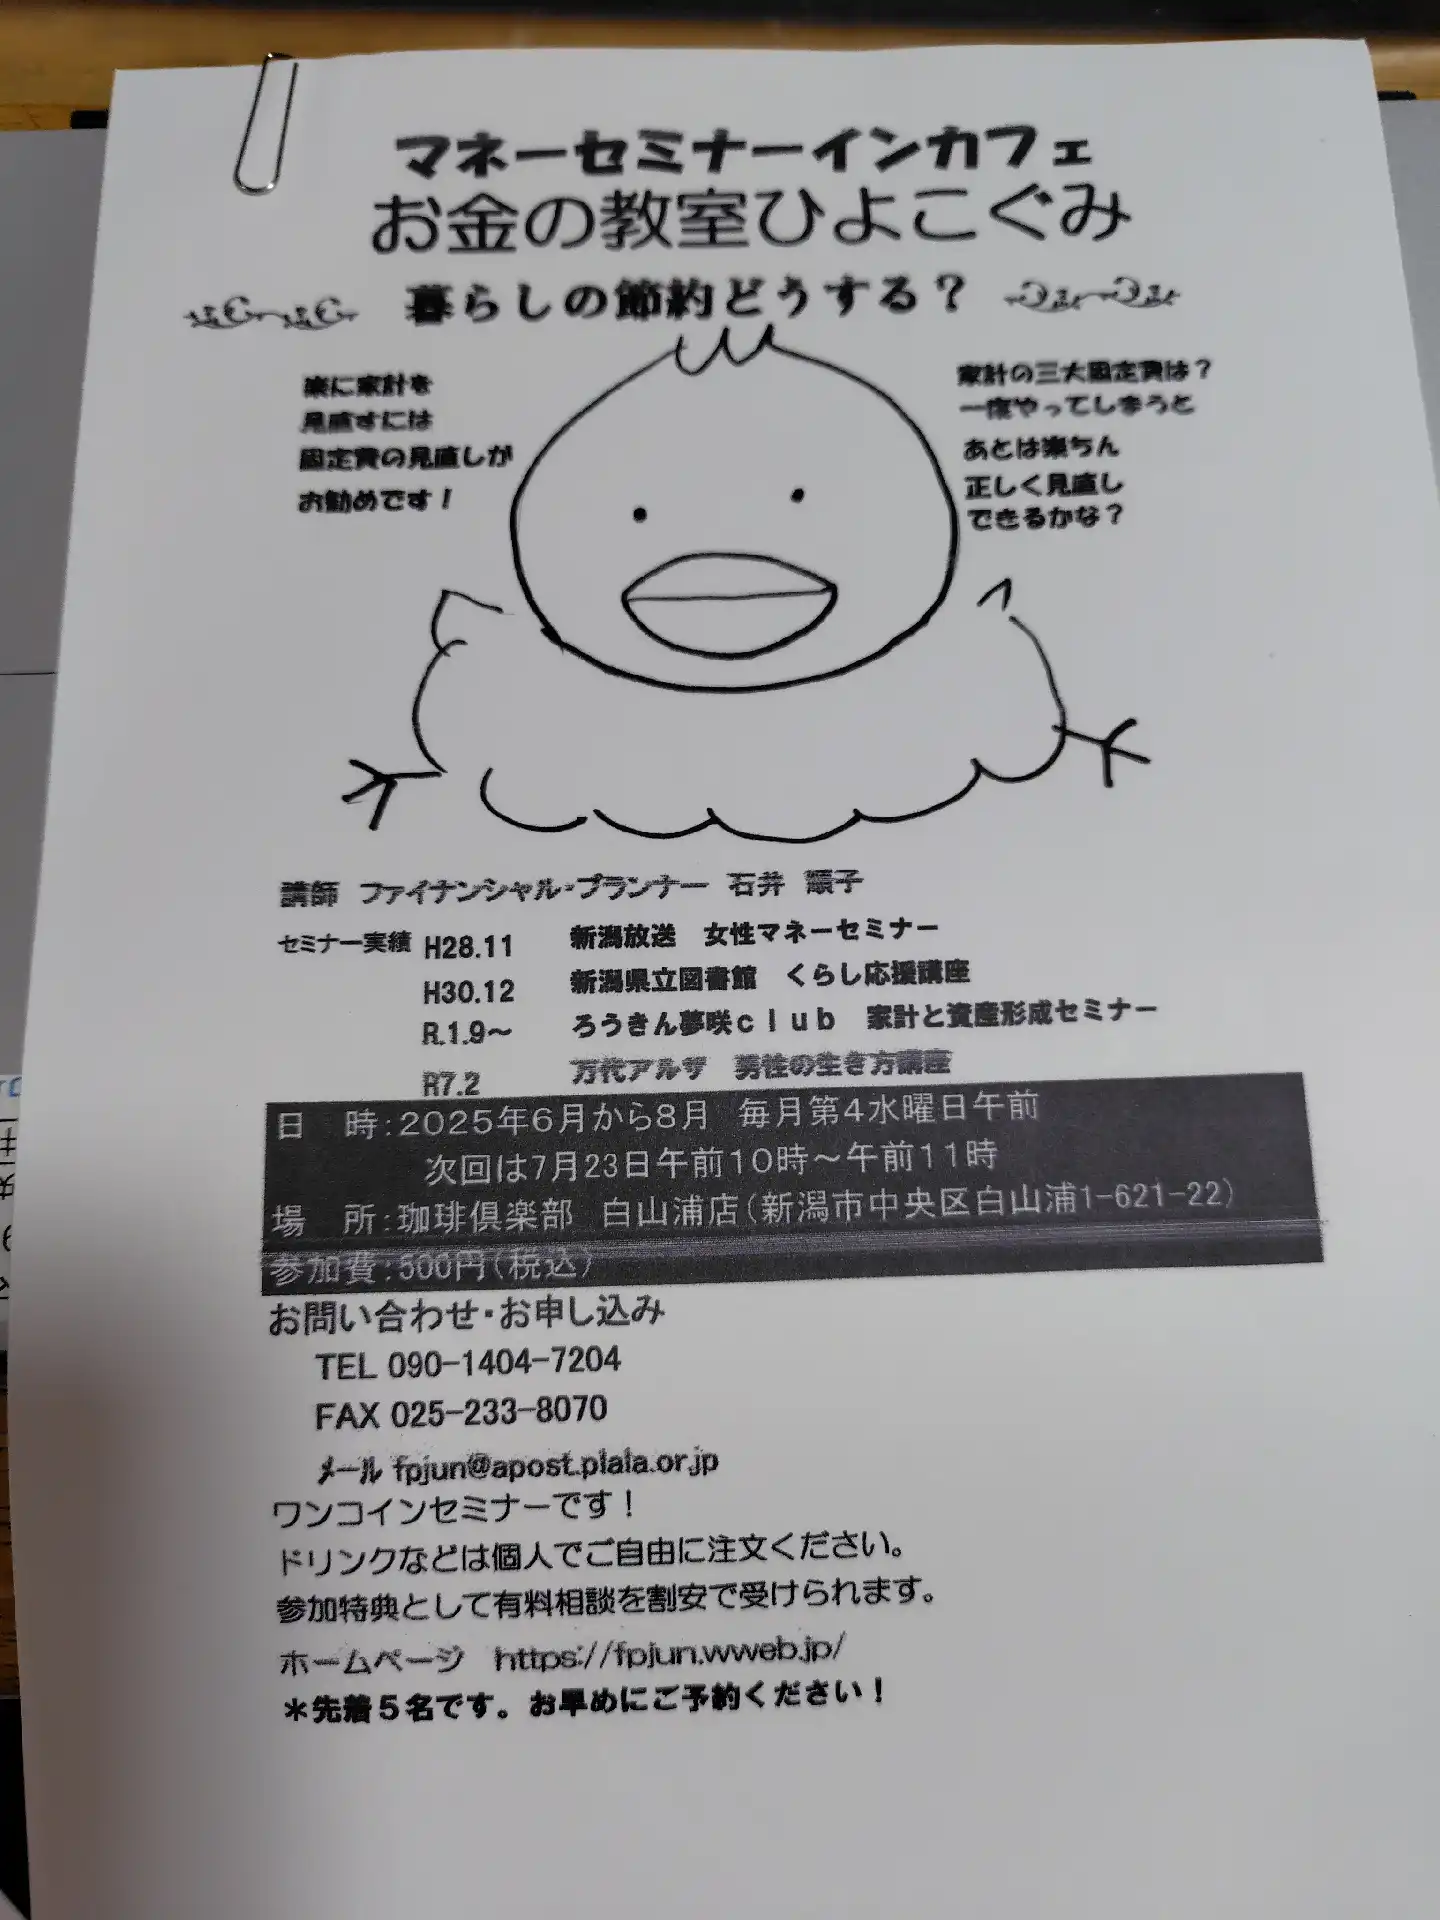 マネーセミナーインカフェ
お金の教室ひよこぐみ
暮らしの節約どうする？
楽に家計を
見直すには
固定費の見直しが
お勧めです！
家計の三大固定費は？
一度やってしまうと
あとは楽ちん
正しく見直し
できるかな？
講師　ファイナンシャル・プランナー　石井　順子
セミナー実績 H28.11　新潟放送　女性マネーセミナー
H30.12　新潟県立図書館　くらし応援講座
R.1.9～　ろうきん夢咲ｃｌｕｂ　家計と資産形成セミナー
R7.2　万代アルザ　男性の生き方講座
日　時：2025年6月から8月　毎月第4水曜日午前
次回は7月23日午前10時～午前11時
場　所：珈琲倶楽部　白山浦店（新潟市中央区白山浦1-621-22）
参加費：500円（税込）
お問い合わせ・お申し込み
TEL 090-1404-7204
FAX 025-233-8070
メール fpjun@apost.plala.or.jp
ワンコインセミナーです！
ドリンクなどは個人でご自由に注文ください。
参加特典として有料相談を割安で受けられます。
ホームページ　https://fpjun.wweb.jp/
＊先着５名です。お早めにご予約ください！